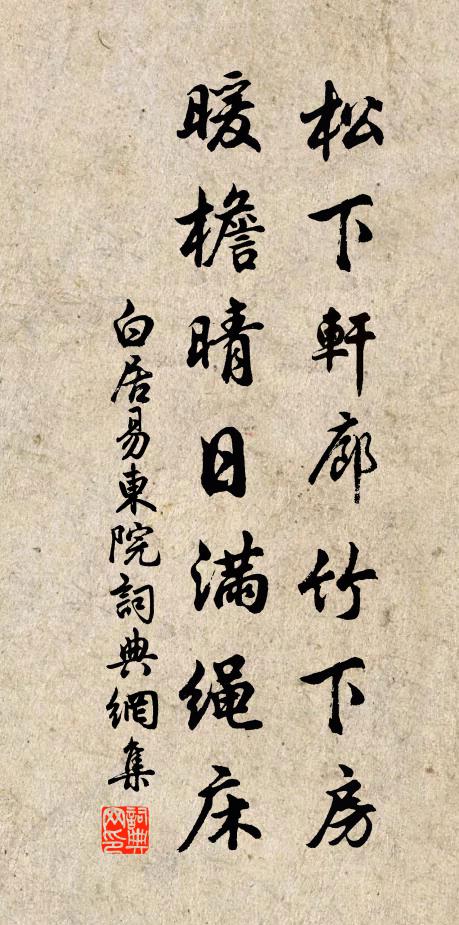 松下軒廊竹下房
暖檐晴日满绳床
白居易東院詞典網集
詞典网印